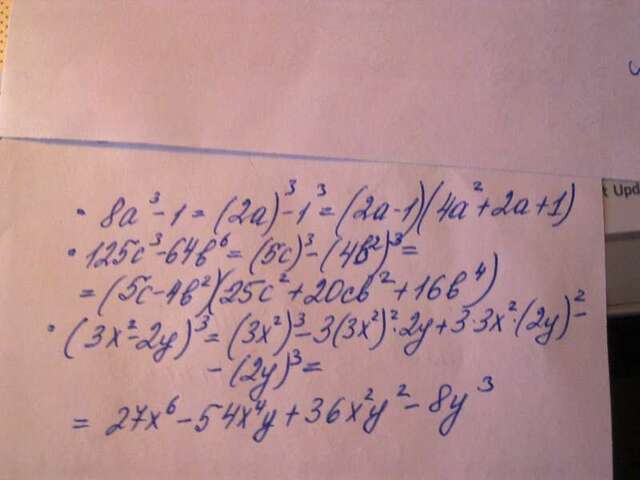 • 8a³-1=(2a)³-1³=(2a-1)(4a²+2a+1)
• 125c³-64b⁶=(5c)³-(4b²)³=
=(5c-4b²)(25c²+20cb²+16b⁴)
• (3x²-2y)³=(3x²)³-3(3x²)²·2y+3·3x²·(2y)²-
-(2y)³=
=27x⁶-54x⁴y+36x²y²-8y³
Upd